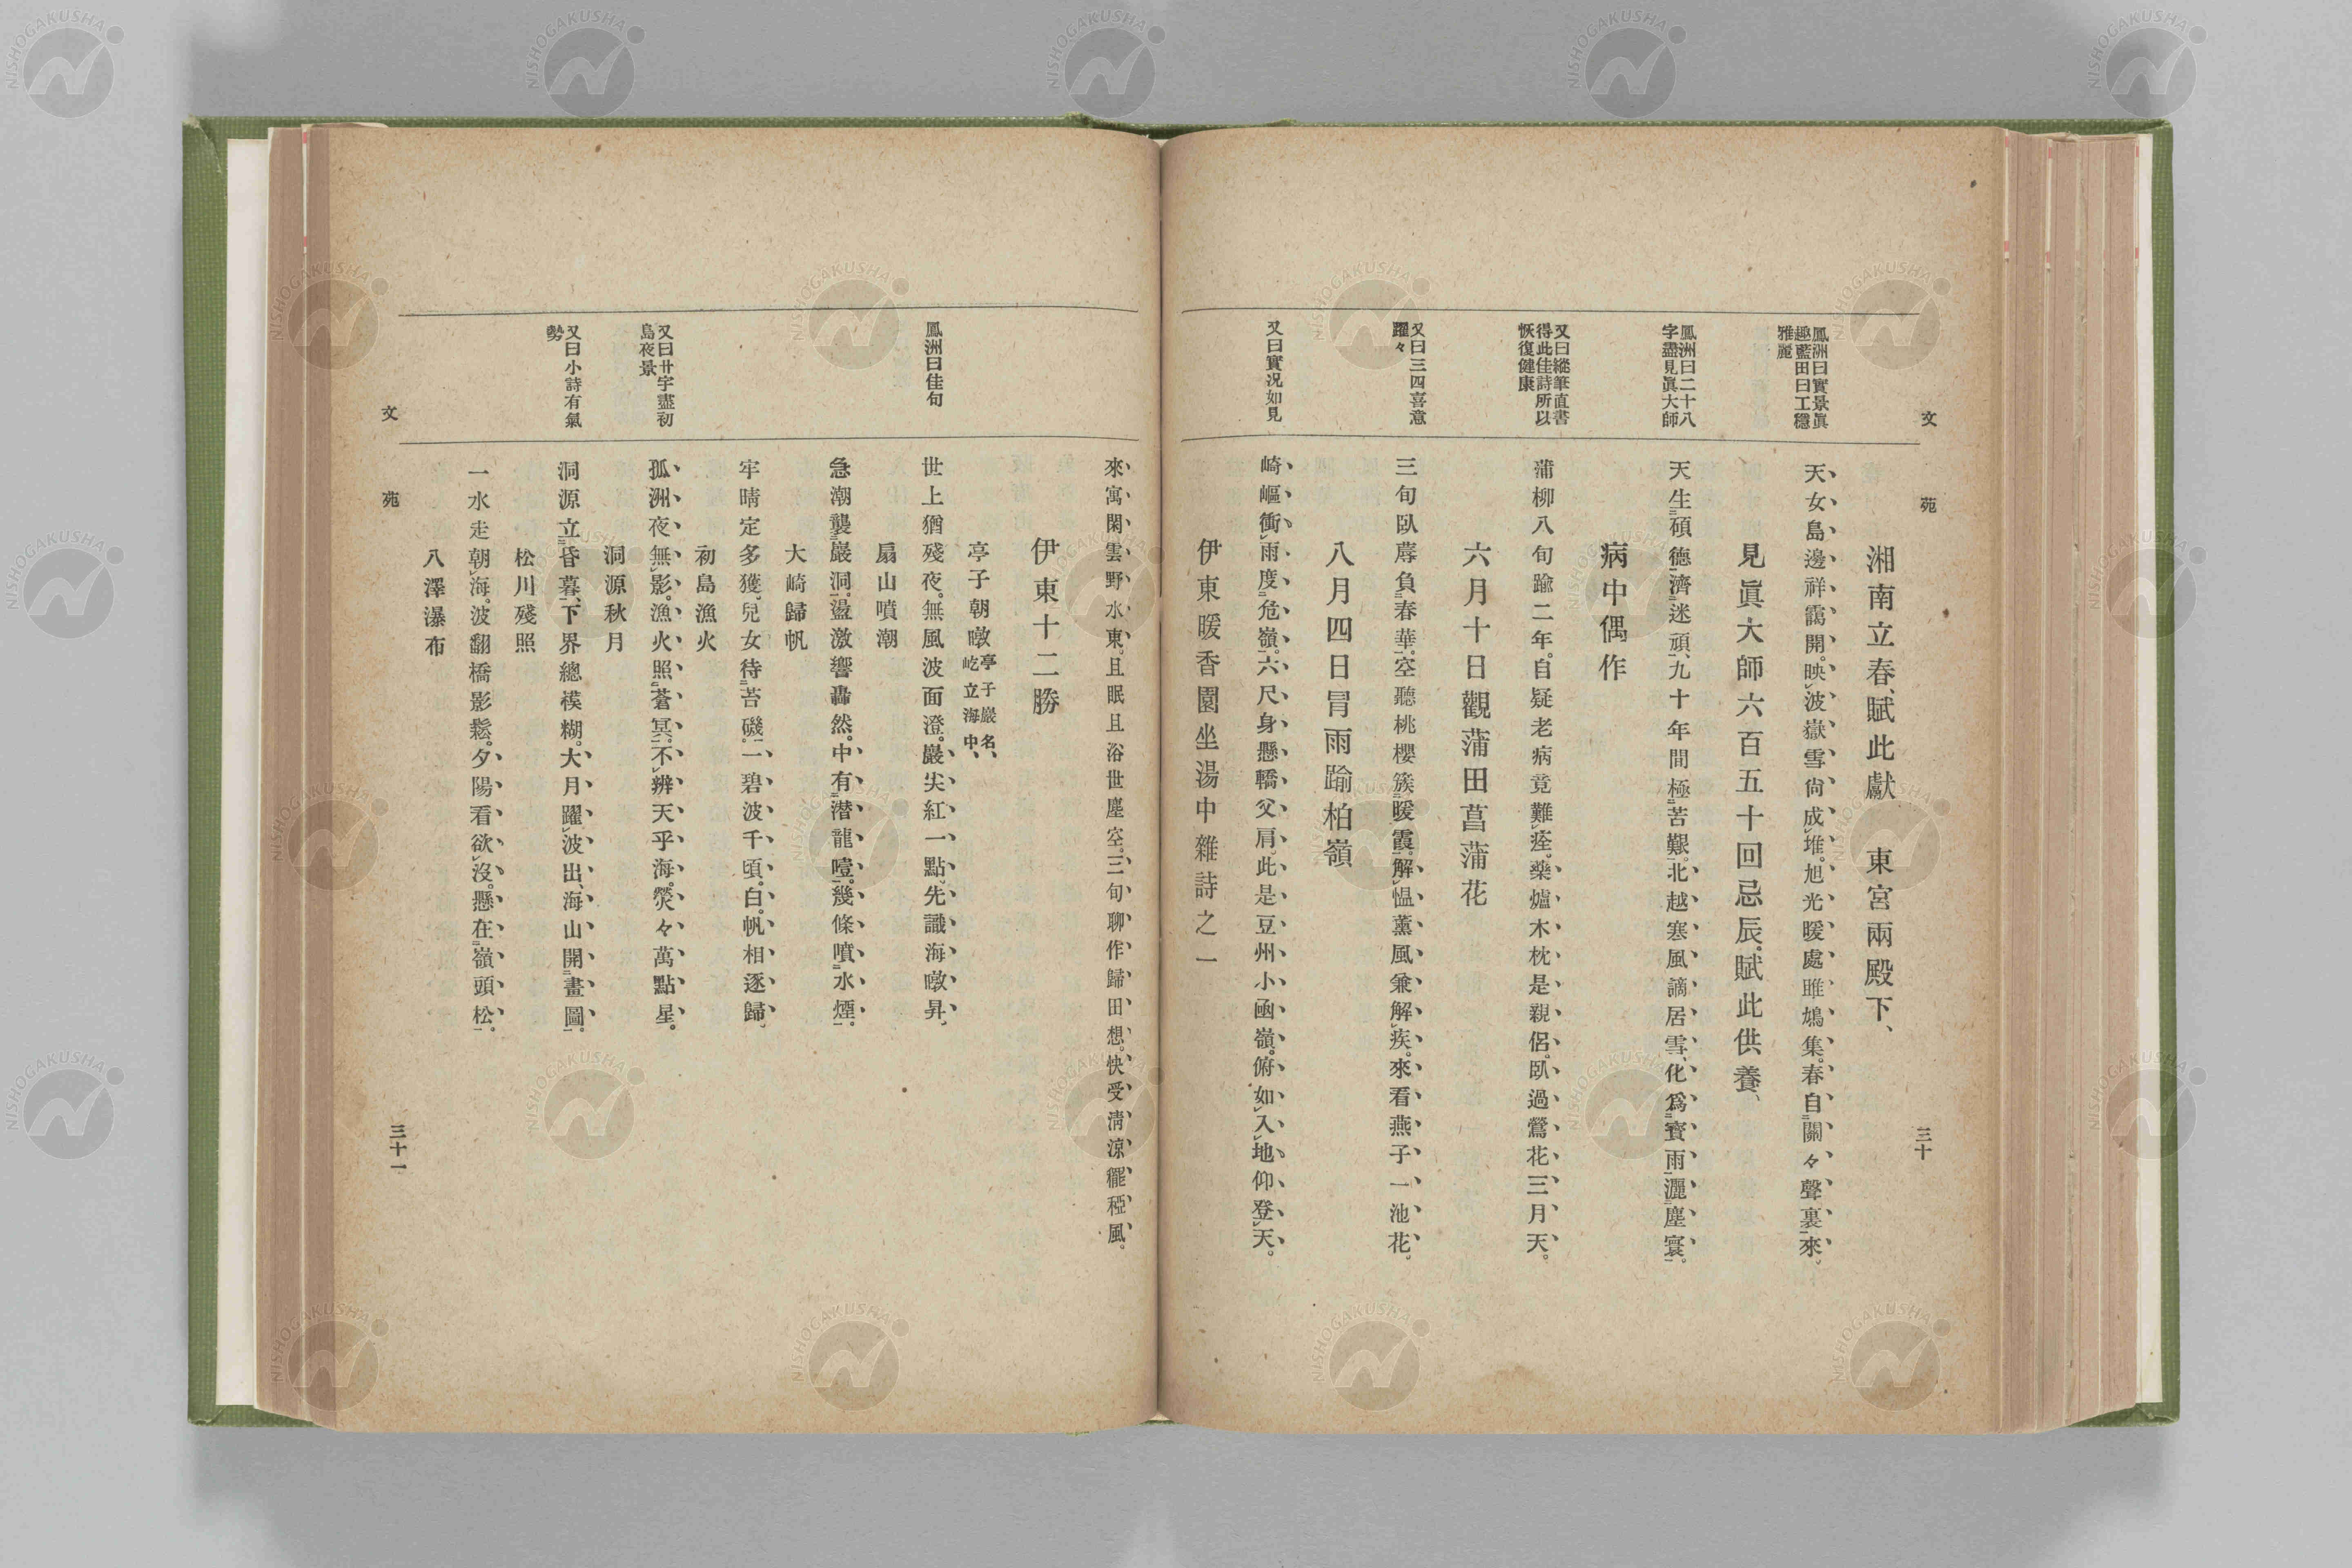 文苑
三十
湘南立春、賦此獻　東宮兩殿下、
鳳洲曰實景眞
趣藍田曰工穩
雅麗
天女島邊祥靄開。映波嶽雪尙成堆。旭光暖處雎鳩集。春自關々聲裏來。
見眞大師六百五十回忌辰。賦此供養、
鳳洲曰二十八
字盡見眞大師
天生碩德濟迷頑、九十年間極苦艱。北越寒風謫居雪、化爲寶雨灑塵寰。
病中偶作
又曰縱筆直書
得此佳詩所以
恢復健康
蒲柳八旬踰二年。自疑老病竟難痊。藥爐木枕是親侶。臥過鶯花三月天。
六月十日觀蒲田菖蒲花
又曰三四喜意
躍々
三旬臥蓐負春華。空聽桃櫻簇暖霞。解慍薰風兼解疾。來看燕子一池花。
八月四日冒雨踰柏嶺
又曰實況如見
崎嶇衝雨度危嶺。六尺身懸轎父肩。此是豆州小凾嶺。俯如入地仰登天。
伊東暖香園坐湯中雜詩之一
來寓閑雲野水東。且眠且浴世塵空。三旬聊作歸田想。快受淸涼䆉稏風。
伊東十二勝
亭子朝暾
亭子巖名、
屹立海中、
鳳洲曰佳句
世上猶殘夜。無風波面澄。巖尖紅一點、先識海暾昇、
扇山噴潮
急潮襲巖洞。盪激響轟然。中有潜龍噎。幾條噴水煙。
大崎歸帆
牢晴定多獲。兒女待苔磯。一碧波千頃。白帆相逐歸、
初島漁火
又曰廿字盡初
島夜景
孤洲夜無影。漁火照蒼冥。不辨天乎海。熒々萬點星。
洞源秋月
又曰小詩有氣
勢
洞源立昏暮、下界總模糊。大月躍波出、海山開畫圖。
松川殘照
一水走朝海。波翻橋影鬆。夕陽看欲沒。懸在嶺頭松。
八澤瀑布
文苑
三十一